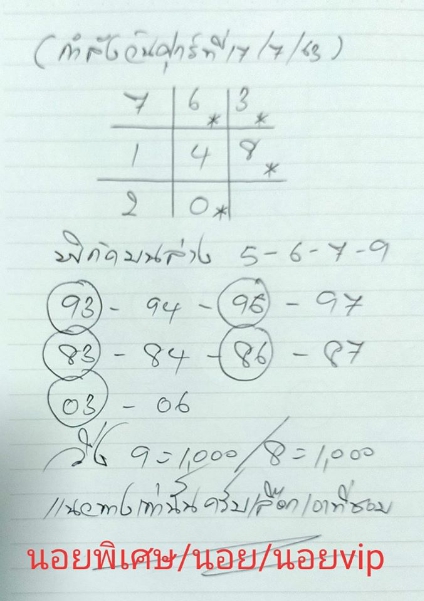 (กำลังวันศุกร์ที่ 17/7/63)
7 6* 3*
1 4 8*
2 0*
พิกัดบนล่าง 5-6-7-9
93 - 94 - 96 - 97
83 - 84 - 86 - 87
03 - 06
วิ่ง 9=1,000/8=1,000
แนะทางเท่านั้นครับ/เลือกเอาที่ชอบ
นอยพิเศษ/นอย/นอยvip